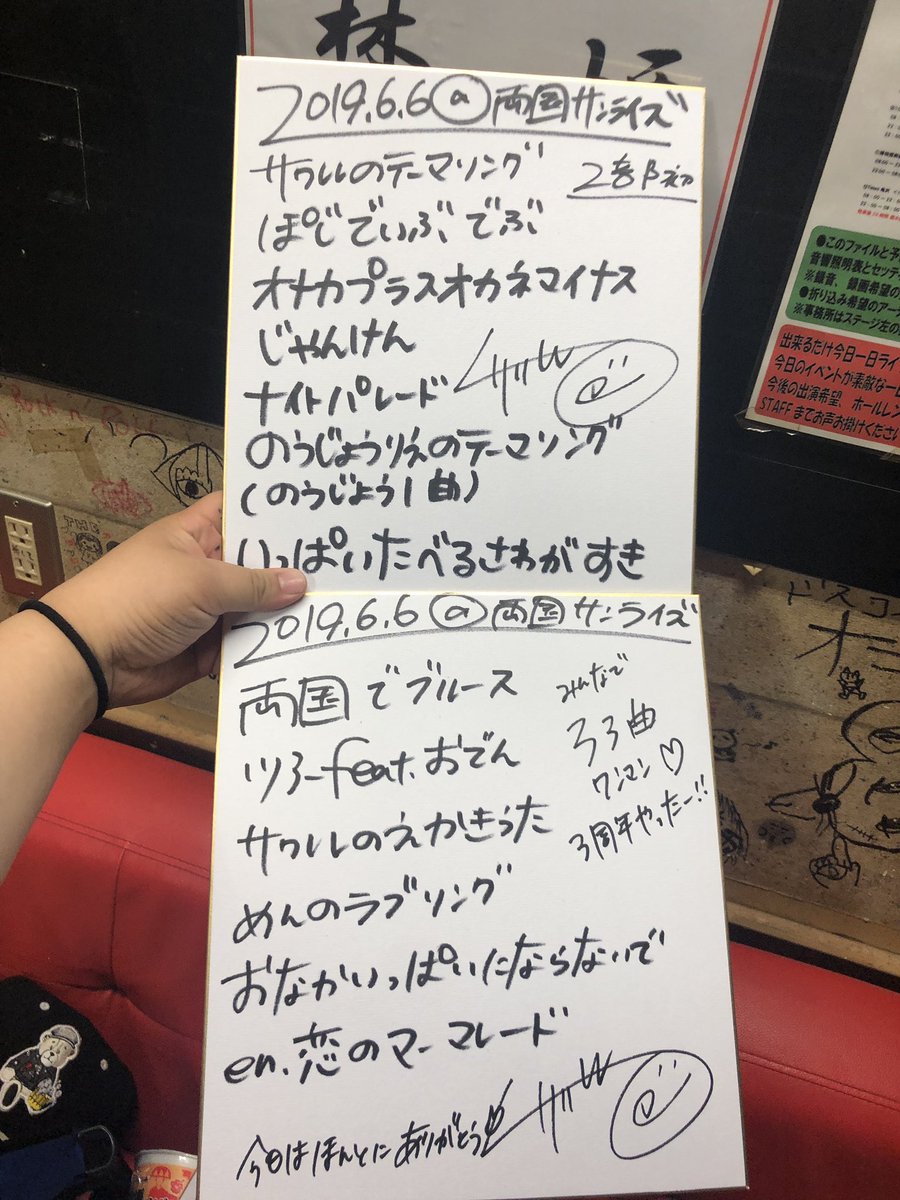 2019.6.6 @ 両国サンライズ
2巻β初
サワルのテーマソング
ぽじでぃぶでぶ
オナカプラスオカネマイナス
じゃんけん
ナイトパレード
のうじょうりえのテーマソング
(のうじょう1曲)
いっぱいたべるさわがすき
2019.6.6 @ 両国サンライズ
両国でブルース
ツアーfeat.おでん
サワルのえかきうた
めんのラブソング
おなかいっぱいにならないで
en.恋のマーマレード
みんなで
33曲
ワンマン♡
3周年やったー!!
今日はほんとにありがとう
●このファイルと予
音響照明表とセッテ
※録音、録画希望の
●折り込み希望のアーテ
※事務所はステージ左の
出来るだけ今日一日ライ
今日のイベントが素敵な一日
今後の出演希望、ホールレン
STAFFまでお声お掛けください